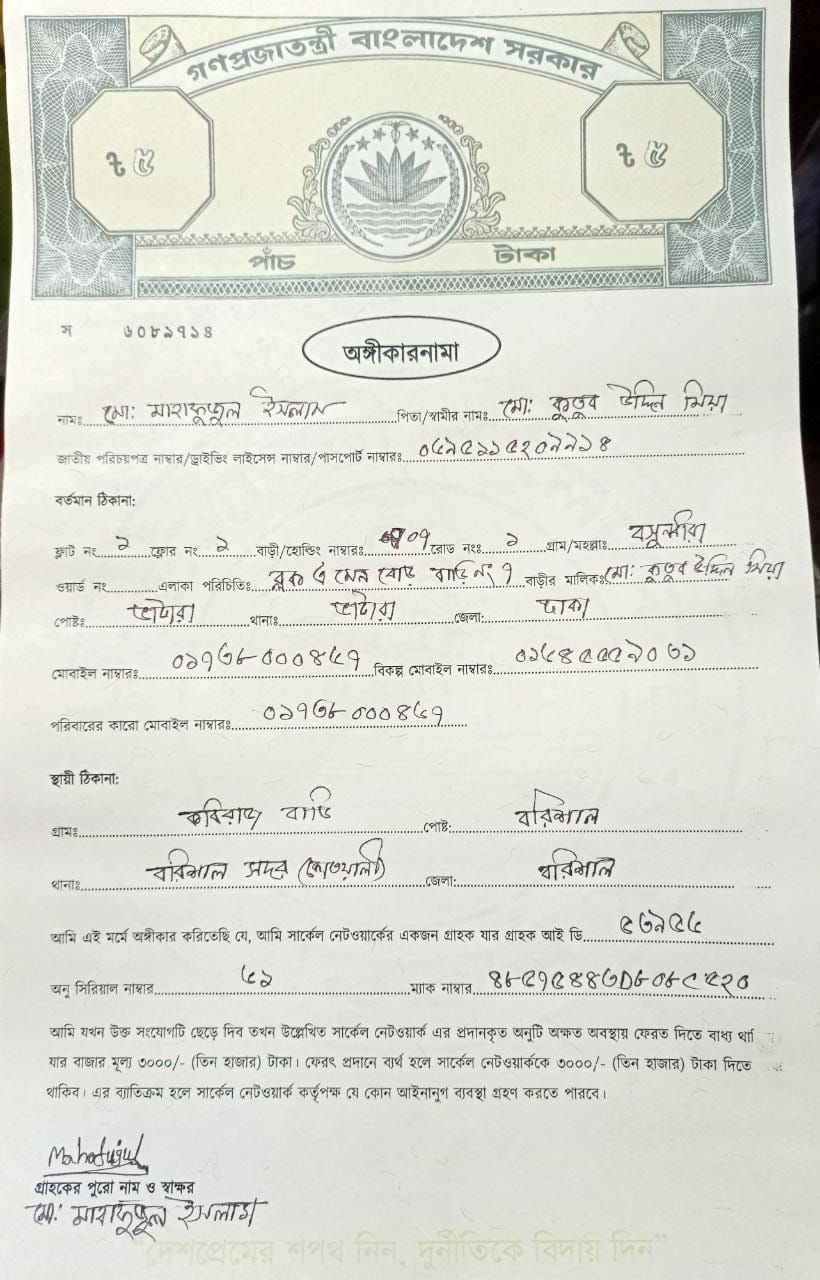 গণপ্রজাতন্ত্রী বাংলাদেশ সরকার
৳ ৫ ৳ ৫
পাঁচ টাকা
স ৬০৮১৭১৪
অঙ্গীকারনামা
নামঃ মো: মাহফুজুল ইসলাম পিতা/স্বামীর নামঃ মো: কুতুব উদ্দিন মিয়া
জাতীয় পরিচয়পত্র নাম্বার/ড্রাইভিং লাইসেন্স নাম্বার/পাসপোর্ট নাম্বারঃ
বর্তমান ঠিকানা:
ফ্লাট নং ২ ফ্লোর নং ২ বাড়ী/হোল্ডিং নাম্বারঃ ০৭ রোড নংঃ ১ গ্রাম/মহল্লাঃ বসুন্ধরা
ওয়ার্ড নং এলাকা পরিচিতিঃ ব্লক মেন রোড বাড়ি নং ৭ বাড়ীর মালিকঃ মো: কুতুব উদ্দিন মিয়া
পোষ্টঃ ভাটারা থানাঃ ভাটারা জেলা: ঢাকা
মোবাইল নাম্বারঃ বিকল্প মোবাইল নাম্বারঃ
পরিবারের কারো মোবাইল নাম্বারঃ
স্থায়ী ঠিকানা:
গ্রামঃ কবিরাজ বাড়ি পোষ্ট: বরিশাল
থানাঃ বরিশাল সদর (কোতয়ালী) জেলা: বরিশাল
আমি এই মর্মে অঙ্গীকার করিতেছি যে, আমি সার্কেল নেটওয়ার্কের একজন গ্রাহক যার গ্রাহক আই ডি
অনু সিরিয়াল নাম্বার ম্যাক নাম্বার
আমি যখন উক্ত সংযোগটি ছেড়ে দিব তখন উল্লেখিত সার্কেল নেটওয়ার্ক এর প্রদানকৃত অনুটি অক্ষত অবস্থায় ফেরত দিতে বাধ্য থা
যার বাজার মূল্য ৩০০০/- (তিন হাজার) টাকা। ফেরৎ প্রদানে ব্যর্থ হলে সার্কেল নেটওয়ার্ককে ৩০০০/- (তিন হাজার) টাকা দিতে
থাকিব। এর ব্যাতিক্রম হলে সার্কেল নেটওয়ার্ক কর্তৃপক্ষ যে কোন আইনানুগ ব্যবস্থা গ্রহণ করতে পারবে।
Mahafujul
গ্রাহকের পুরো নাম ও স্বাক্ষর
মো: মাহফুজুল ইসলাম
"দেশপ্রেমের শপথ নিন, দুর্নীতিকে বিদায় দিন"